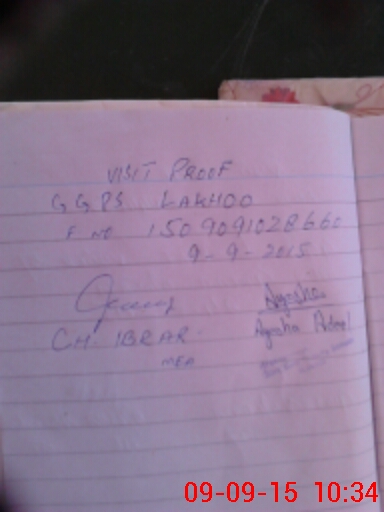 VISIT PROOF
G G PS LAKHOO
F NO 1509091028660
9-9-2015
Ayesha
CH. IBRAR Ayesha
MEA
09-09-15 10:34